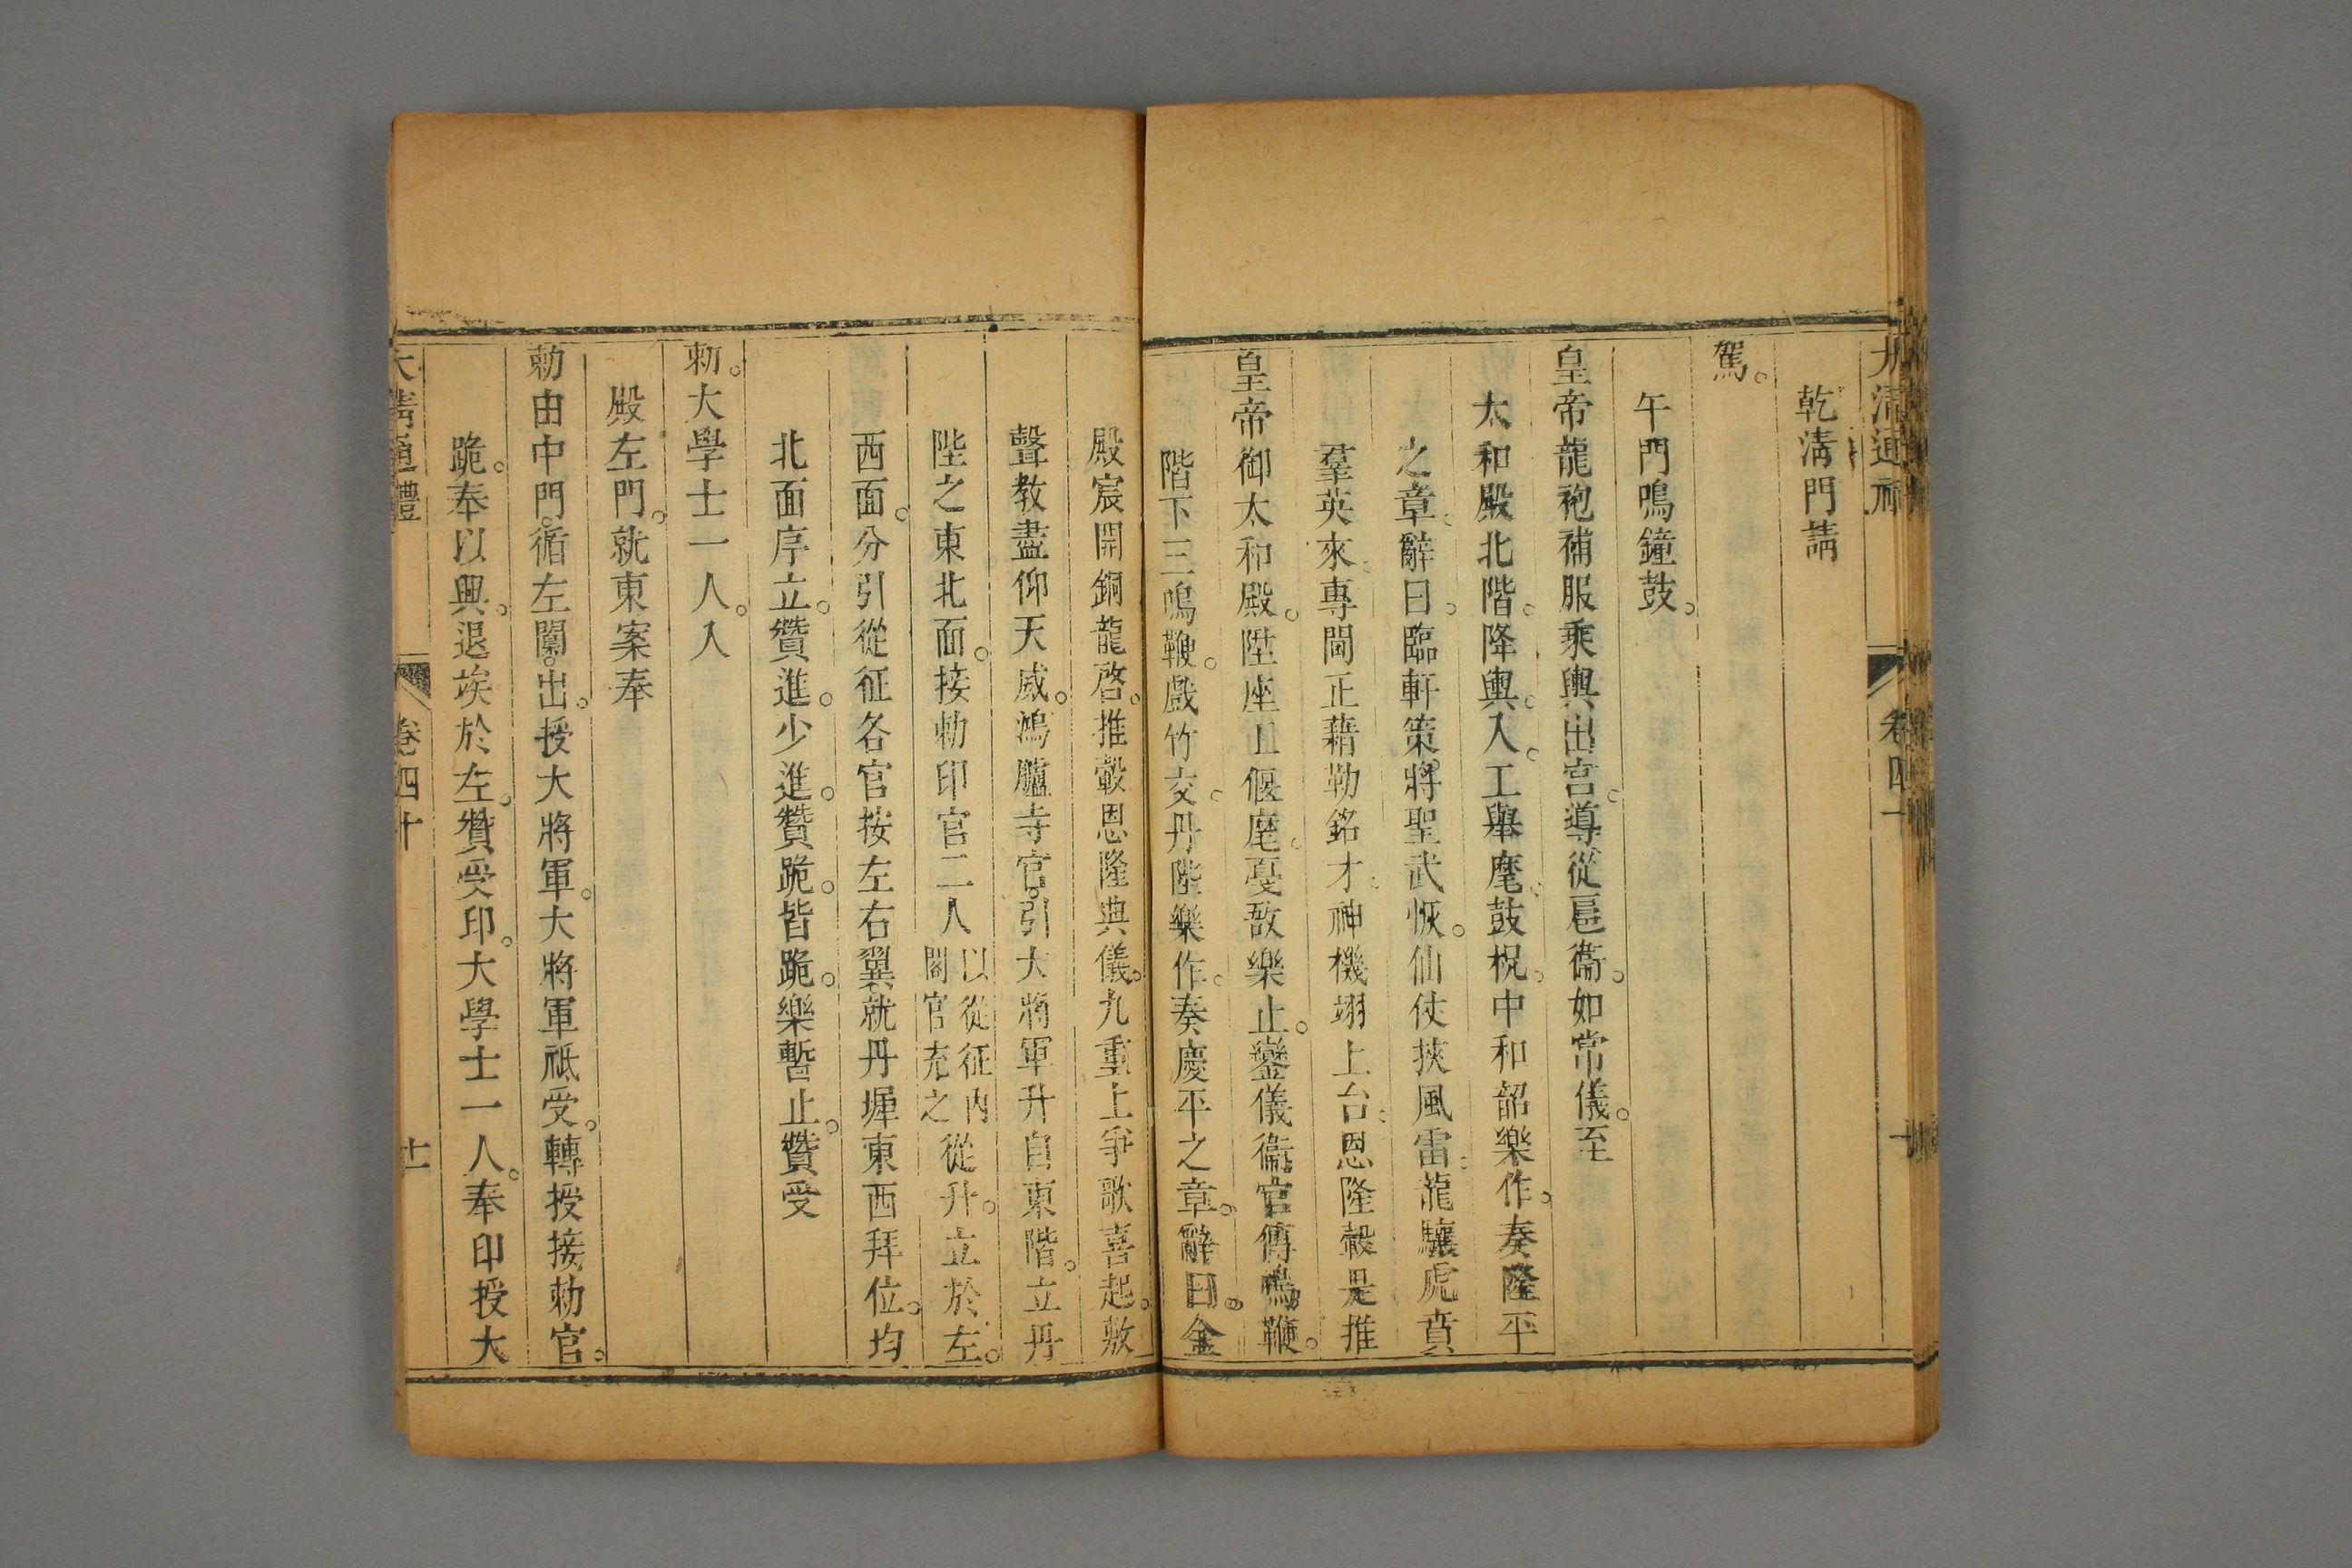 大清通禮 卷四十
乾淸門請
駕。
午門鳴鐘鼓。
皇帝龍袍補服乘輿出宫。導從扈衞。如常儀。至
太和殿北階。降輿。入。工舉麾。鼓柷。中和韶樂作。奏隆平
之章。辭曰。臨軒策將聖武恢。仙仗挾風雷。龍驤虎賁
羣英來。專閫正藉勒銘才。神機翊上台。恩隆轂是推
皇帝御太和殿。陞座。工偃麾。戞敔樂止。鑾儀衞官傳鳴鞭。
階下三鳴鞭。戲竹交。丹陛樂作。奏慶平之章。辭曰。金
殿宸開銅龍啓。推轂恩隆典儀。九重上爭歌喜起。敷
聲敎盡仰天威。鴻臚寺官。引大將軍升自東階。立丹
陛之東北面。接勅印官二人以從征内閣官充之從升。立於左。
西面。分引從征各官按左右翼就丹墀東西拜位。均
北面序立。贊進。少進。贊跪。皆跪。樂暫止。贊受
勅。大學士一人。入
殿左門。就東案奉
勅由中門。循左闑。出。授大將軍。大將軍祗受。轉授接勅官。
跪。奉以興。退竢於左。贊受印。大學士一人。奉印授大
大淸通禮 卷四十 十一